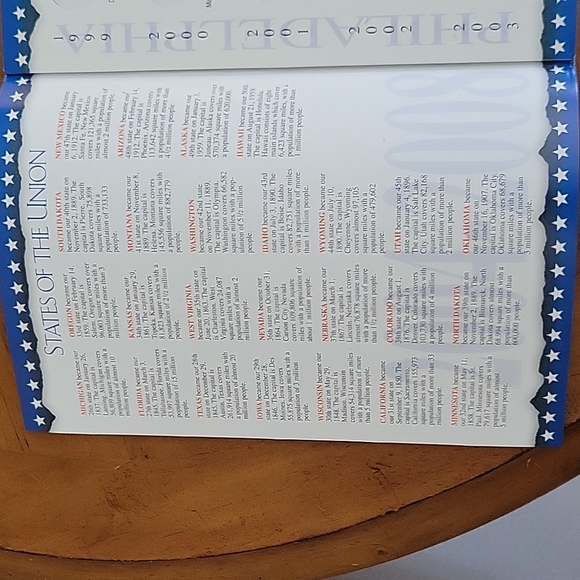 STATES OF THE UNION
MICHIGAN became our
26th state on January 26,
1837. The capital is
Lansing. Michigan covers
56,809 square miles with a
population of almost 10
million people.
FLORIDA became our
27th state on March 3,
1845. The capital is
Tallahassee. Florida covers
53,997 square miles with a
population of 15 million
people.
TEXAS became our 28th
state on December 29,
1845. The capital is
Austin. Texas covers
square miles with a
population of almost 20
million people.
IOWA became our 29th
state on December 28,
1846. The capital is Des
Moines. Iowa covers
55,875 square miles with a
population of 3 million
people.
WISCONSIN became our
30th state on May 29,
1848. The capital is
Madison. Wisconsin
covers 54,314 square miles
with a population of more
than 5 million people.
CALIFORNIA became
our 31st state on
September 9, 1850. The
capital is Sacramento.
California covers 155,973
square miles with a
population of more than 33
million people.
MINNESOTA became
our 32nd state on May 11,
1858. The capital is St.
Paul. Minnesota covers
79,617 square miles with a
population of almost
5 million people.
OREGON became our
33rd state on February 14,
1859. The capital is
Salem. Oregon covers over
96,003 square miles with a
population of more than 3
million people.
KANSAS became our
34th state on January 29,
1861. The capital is
Topeka. Kansas covers
81,823 square miles with a
population of 2½ million
people.
WEST VIRGINIA
became our 35th state on
June 20, 1863. The capital
is Charleston. West
Virginia covers 24,087
square miles with a
population of almost 2
million people.
NEVADA became our
36th state on October 31,
1864. The capital is
Carson City. Nevada
covers 109,806 square
miles with a population of
about 1 million people.
NEBRASKA became our
37th state on March 1,
1867. The capital is
Lincoln. Nebraska covers
almost 76,878 square miles
with a population of more
than 1½ million people.
COLORADO became our
38th state on August 1,
1876. The capital is
Denver. Colorado covers
103,730 square miles with
a population of 4 million
people.
NORTH DAKOTA
became our 39th state on
November 2, 1889. The
capital is Bismarck. North
Dakota covers over
68,994 square miles with a
population of more than
600,000 people.
SOUTH DAKOTA
became our 40th state on
November 2, 1889. The
capital is Pierre. South
Dakota covers 75,898
square miles with a
population of 733,133
people.
MONTANA became our
41st state on November 8,
1889. The capital is
Helena. Montana covers
145,556 square miles with
a population of 882,779
people.
WASHINGTON
became our 42nd state
on November 11, 1889.
The capital is Olympia.
Washington covers 66,582
square miles with a pop-
ulation of 5½ million
people.
IDAHO became our 43rd
state on July 3, 1890. The
capital is Boise. Idaho
covers 82,751 square miles
with a population of more
than 1 million people.
WYOMING became our
44th state on July 10,
1890. The capital is
Cheyenne. Wyoming
covers almost 97,105
square miles with a
population of 479,602
people.
UTAH became our 45th
state on January 4, 1896.
The capital is Salt Lake
City. Utah covers 82,168
square miles with a
population of more than
2 million people.
OKLAHOMA became
our 46th state on
November 16, 1907. The
capital is Oklahoma City.
Oklahoma covers 68,679
square miles with a
population of more than
3 million people.
NEW MEXICO became
our 47th state on January
6, 1912. The capital is
Santa Fe. New Mexico
covers 121,365 square
miles with a population of
almost 2 million people.
ARIZONA became our
48th state on February 14,
1912. The capital is
Phoenix. Arizona covers
113,642 square miles with
a population of more than
people.
ALASKA became our
49th state on January 3,
1959. The capital is
Juneau. Alaska covers over
570,374 square miles with
a population of 620,000.
HAWAII became our 50th
state on August 21, 1959.
The capital is Honolulu.
Hawaii consists of eight
main islands which cover
6,423 square miles with a
population of more than
1 million people.
PHILADELPHIA
1999
2000
2001
2002
2003